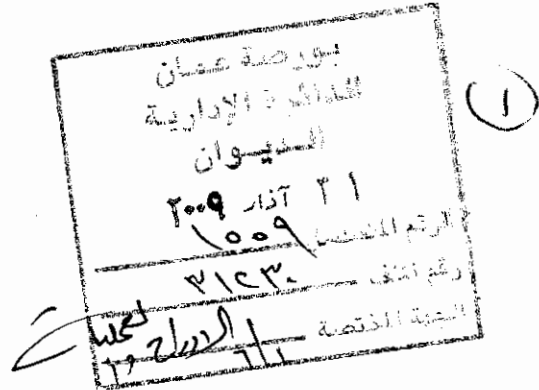 بورصة عمان
الدائرة الإدارية
الديوان
٣١ آذار ٢٠٠٩
الرقم المتسلسل ١٥٠٠٩
رقم الملف ٣١٢٣٠
الجهة المختصة الإدراج
①